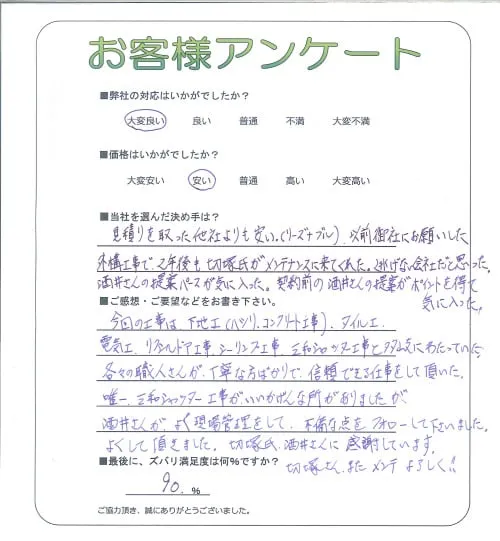 お客様アンケート
■弊社の対応はいかがでしたか？
大変良い 良い 普通 不満 大変不満
■価格はいかがでしたか？
大変安い 安い 普通 高い 大変高い
■当社を選んだ決め手は？
見積りを取った他社よりも安い。(リーズナブル)、以前御社にお願いした
外構工事で、2年後も切塚氏がメンテナンスに来てくれた。逃げない会社だと思った。
酒井さんの提案パースが気に入った。契約前の酒井さんの提案がポイントを得て
気に入った。
■ご感想・ご要望などをお書き下さい。
今回の工事は、下地工(ハツリ、コンクリート工事)、タイル工、
電気工、リフォルドア工事、シーリング工事、三和シャッター工事と多気にわたっていた。
各々の職人さんが、丁寧な方ばかりで、信頼できる仕事をして頂いた。
唯一、三和シャッター工事がいいかげんな所がありましたが、
酒井さんが、よく現場管理をして、不備な点をフォローして下さいました。
よくして頂きました。切塚氏、酒井さんに感謝しています。
切塚さん、またメンテよろしく!!
■最後に、ズバリ満足度は何％ですか？
90. %
ご協力頂き、誠にありがとうございました。